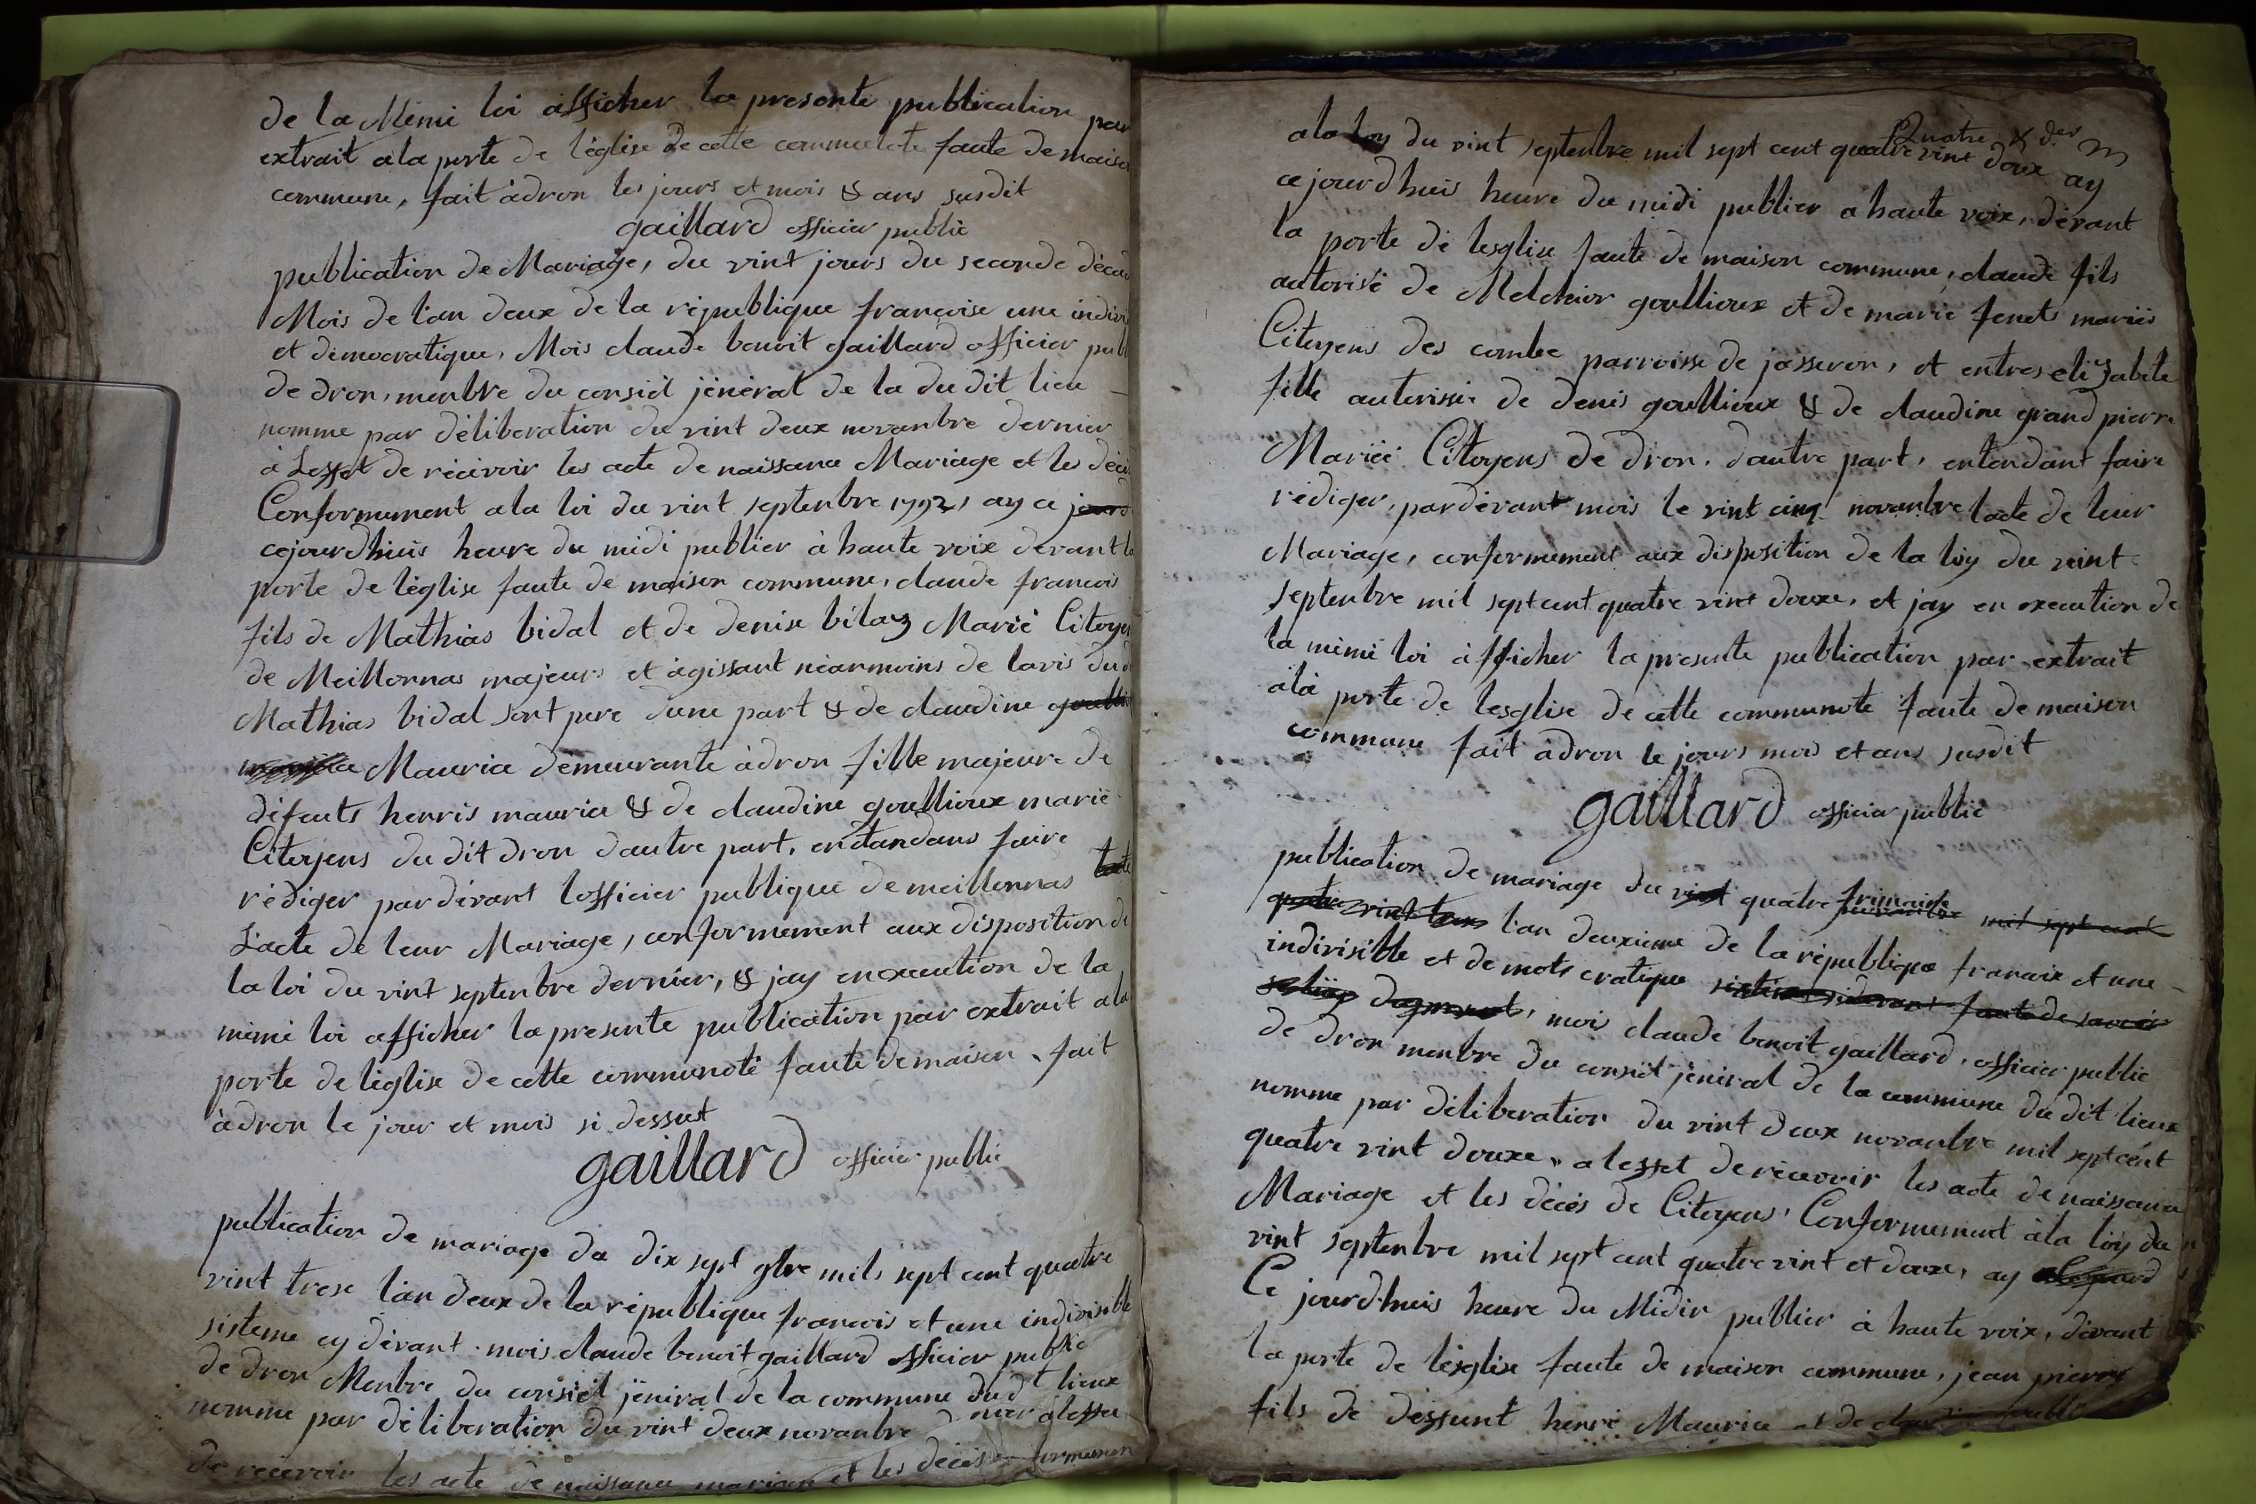 de la Mémé loi afficher la presente publication par
extrait a la porte de l'église de cette communoté faute de maison
commune, fait à dron les jours et mois & ans susdit
gaillard officier public
publication de Mariage, du vint jours du seconde décad
Mois de l'an deux de la république françoise une indivi
et démocratique, Mois claude benoit gaillard officier publ
de dron, menbre du consiél jénéral de la du dit lieu
nomme par déliberation du vint deux novanbre dernier
à Lesset de récévoir les acte de naissance Mariage et les décé
Conformement a la loi du vint septenbre 1792, ay ce
cejourdhuis heure du midi publier à haute voix devant la
porte de léglise faute de maison commune, claude francois
fils de Mathias bidal et de denise bilaz Marié Citoyen
de Meillonnas majeurs et àgissant néanmoins de lavis du d
Mathias bidal sont pere dune part & de claudine
Mauria démeurante àdron fille majeure de
défeuts henris mauria & de claudine goullioux marié
Citoyens du dit dron dautre part, entandans faire
rédiger pardévant lofficier publique de meillonnas
Lacte de leur Mariage, conformement aux disposition de
la loi du vint septenbre dernier, & jay en execution de la
mémé loi afficher la presente publication par extrait a la
porte de léglise de cette communoté faute de maison, fait
àdron le jour et mois si dessut
gaillard officier public
publication de mariage du dix sept gbre mils sept cent quatre
vint trese l'an deux de la république francois et une indivisible
sisteme cy dévant mois claude benoit gaillard officier public
de dron Menbre du consiél jéniral de la commune du dt lieux
nomme par déliberation du vint deux novanbre alesset
de récevoir les acte de naissance mariage et les décés
a la loy du vint septenbre mil sept cent quatre vint doux ay
cejourdhuis heure du midi publier a haute voix, dévant
la porte de lesglise faute de maison commune, claude fils
autorisé de Melchior goullioux et de marie fenets mariés
Citoyens des combe parroisse de jasseron, et entres elizabete
fille autorissée de denis goullioux & de claudine grand pierre
Mariéé Citoyens de dron, dautre part, entendant faire
rédiger, pardévant mois le vint cinq novanbre lacte de leur
Mariage, conformement aux disposition de la loy du vint
septenbre mil sept cent quatre vint douxe, et jay en execution de
la mémé loi àfficher la presente publication par extrait
àlà porte de lesglise de cette communote faute de maison
commune fait àdron le jours mois et ans susdit
gaillard officier public
publication de mariage du vint quatre frimaire mil sept cent
quatre vint trese l'an deuxieme de la républiqce francaix et une
indivisible et démots cratique faute de savoir
mois claude benoit gaillard, officier public
de dron menbre du consiél jéniral de la commune du dit lieux
nomme par déliberation du vint deux novanbre mil sept cént
quatre vint douxe, alesset de récevoir les acte de naissance
Mariage et les décés de Citoyens, Conformement àla loy du
vint septenbre mil sept cent quatre vint et doux, ay
Ce jourdhuis heure du Midir publier à haute voix, dévant
la porte de lésglise faute de maison commune, jean pierre
fils de dessunt henri Mauria et de